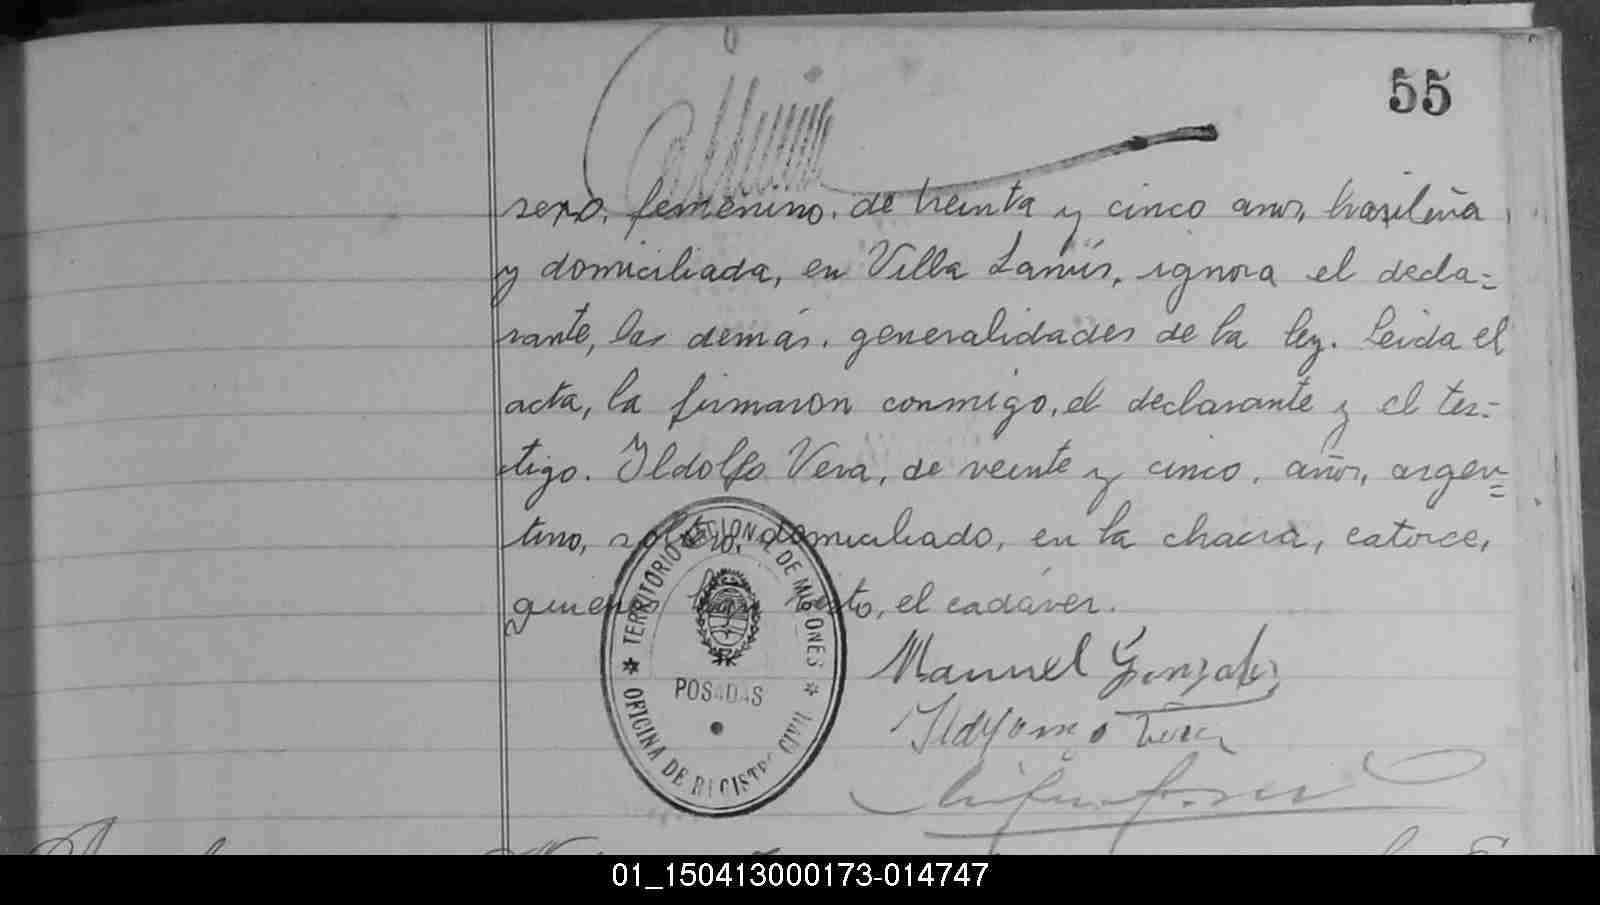 55
sexo, femenino, de treinta y cinco años, brasileña
y domiciliada, en Villa Lanús, ignora el decla=
rante, las demás, generalidades de la ley. Leida el
acta, la firmaron conmigo, el declarante y el tes=
tigo. Ildolfo Vera, de veinte y cinco, años, argen=
tino, soltero, domiciliado, en la chacra, catorce,
quienes han visto, el cadáver.
TERRITORIO NACIONAL DE MISIONES
POSADAS
OFICINA DE REGISTRO CIVIL
Manuel Gonzalez
Vera
01_150413000173-014747